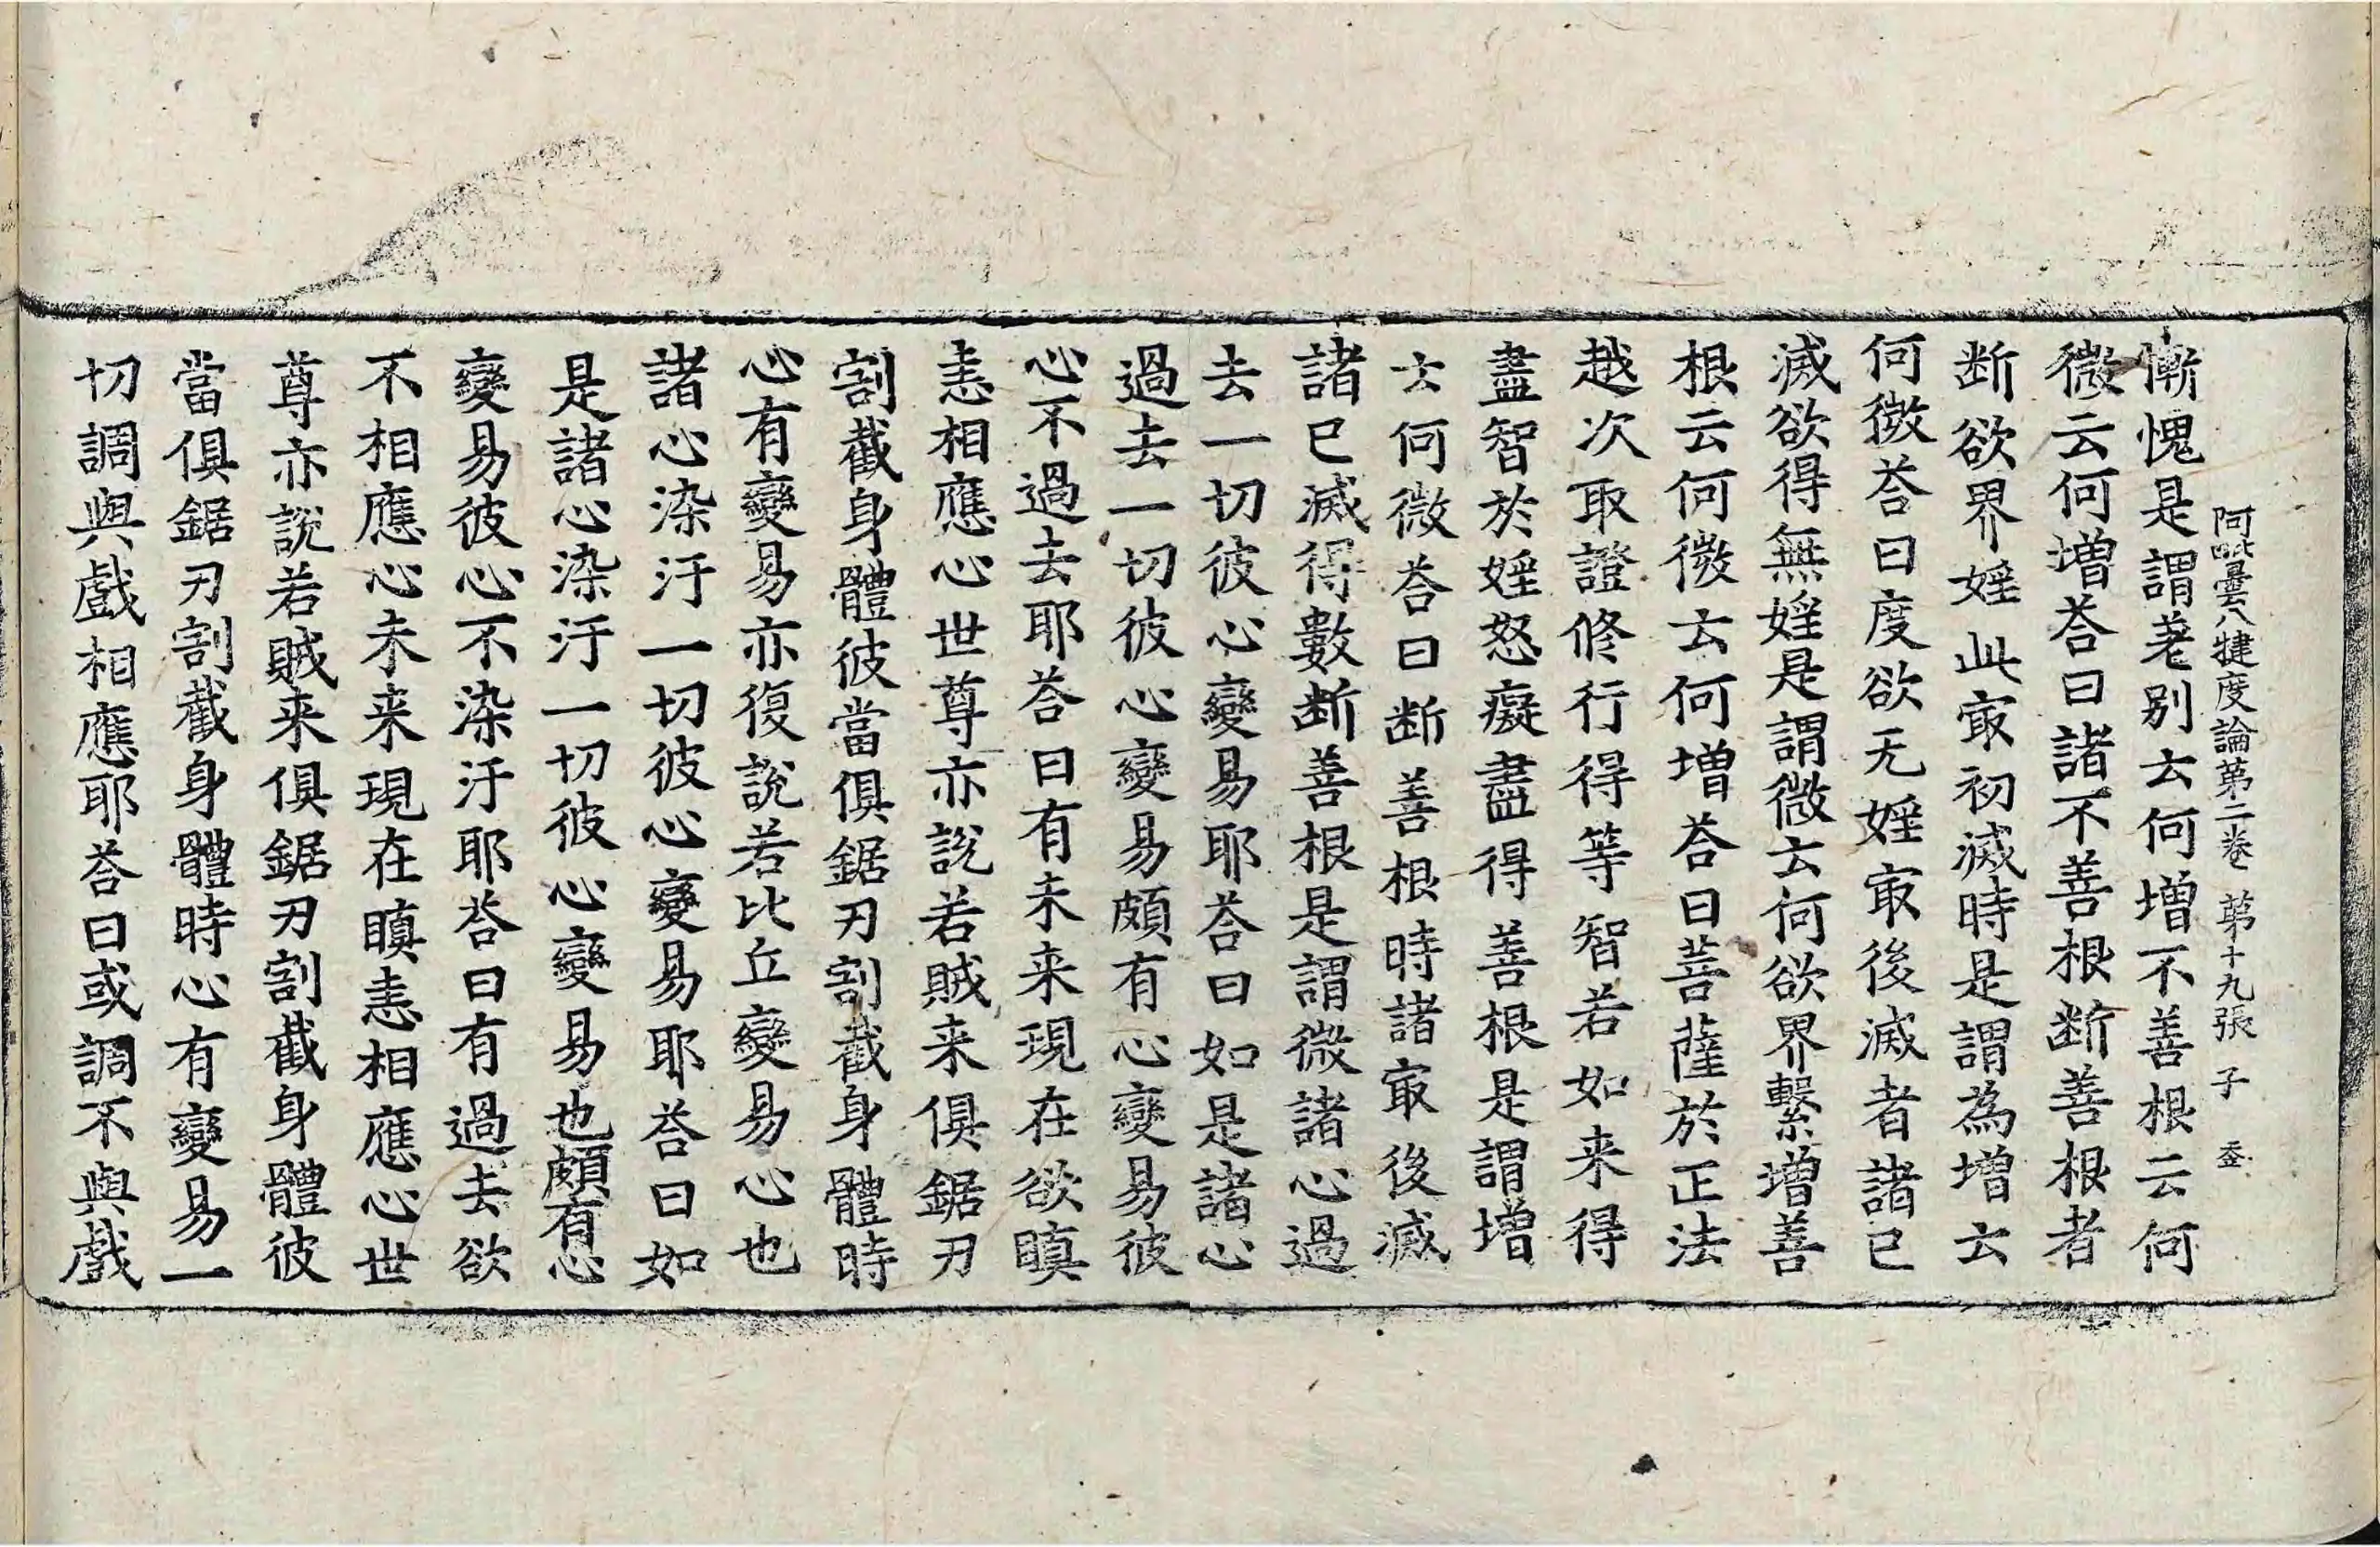 阿毗曇八犍度論第二卷 第十九張 子
慚愧是謂差别云何增不善根云何
微云何增荅曰諸不善根断善根者
断欲界婬此㝡初滅時是謂為增云
何微荅曰度欲无婬㝡後滅者諸已
滅欲得無婬是謂微云何欲界繫增善
根云何微云何增荅曰菩薩於正法
越次取證修行得等智若如来得
盡智於婬怒癡盡得善根是謂增
云何微荅曰断善根時諸㝡後滅
諸已滅得數断善根是謂微諸心過
去一切彼心變易耶荅曰如是諸心
過去一切彼心變易頗有心變易彼
心不過去耶荅曰有未来現在欲瞋
恚相應心世尊亦說若賊来俱鋸刃
割截身體彼當俱鋸刃割截身體時
心有變易亦復說若比丘變易心也
諸心染汙一切彼心變易耶荅曰如
是諸心染汙一切彼心變易也頗有心
變易彼心不染汙耶荅曰有過去欲
不相應心未来現在瞋恚相應心世
尊亦說若賊来俱鋸刃割截身體彼
當俱鋸刃割截身體時心有變易一
切調與戲相應耶荅曰或調不與戲